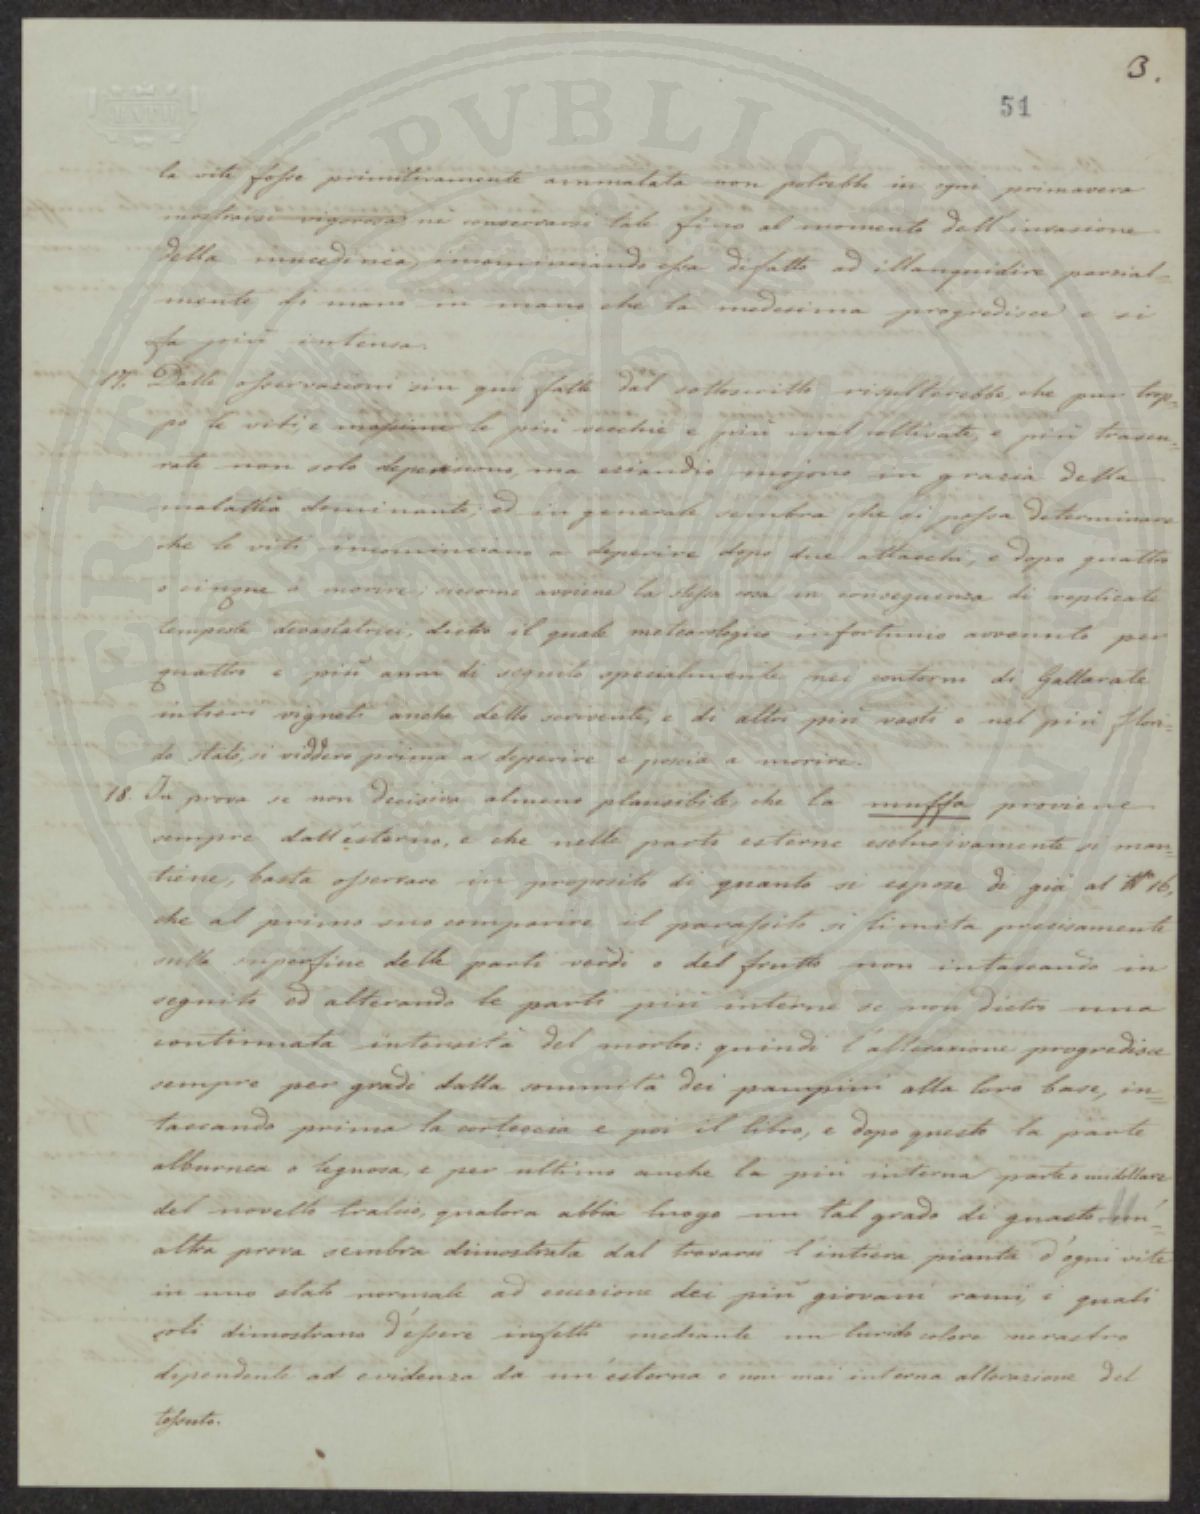 3.
51
la vite fosse primitivamente ammalata non potrebbe in ogni primavera
mostrarsi vigorosa nè conservarsi tale fino al momento dell'invasione
della mucedinea, incominciando essa difatto ad illanguidire parzial=
mente di mano in mano che la medesima progredisce e si
fa più intensa.
17. Dalle osservazioni sin qui fatte dal sottoscritto risulterebbe, che pur trop=
po le viti, e massime le più vecchie e più mal coltivate, e più trascu=
rate non solo deperiscono, ma eziandio muojono in grazia della
malattia dominante; ed in generale sembra che si possa determinare
che le viti incominciano a deperire dopo due attacchi, e dopo quattro
o cinque a morire; siccome avviene la stessa cosa in conseguenza di replicate
tempeste devastatrici, dietro il quale meteorologico infortunio avvenuto per
quattro e più anni di seguito specialmente nei contorni di Gallarate
intieri vigneti anche dello scrivente, e di altri più vasti e nel più flori=
do stato, si viddero prima a deperire e poscia a morire.
18. In prova se non decisiva almeno plausibile, che la muffa proviene
sempre dall'esterno, e che nelle parti esterne esclusivamente si man=
tiene, basta osservare in proposito di quanto si espose di già al N° 16,
che al primo suo comparire il parassito si limita precisamente
sulla superficie delle parti verdi o del frutto non intaccando in
seguito ed alterando le parti più interne se non dietro una
continuata intensità del morbo: quindi l'alterazione progredisce
sempre per gradi dalla sommità dei pampini alla loro base, in=
taccando prima la corteccia e poi il libro, e dopo questo la parte
alburnea o legnosa, e per ultimo anche la più interna parte o midollare
del novello tralcio, qualora abbia luogo un tal grado di guasto. Un'=
altra prova sembra dimostrata dal trovarsi l'intiera pianta d'ogni vite
in uno stato normale ad eccezione dei più giovani rami, i quali
soli dimostrano d'essere infetti mediante un lurido colore nerastro
dipendente ad evidenza da un'esterna e non mai interna alterazione del
tessuto.